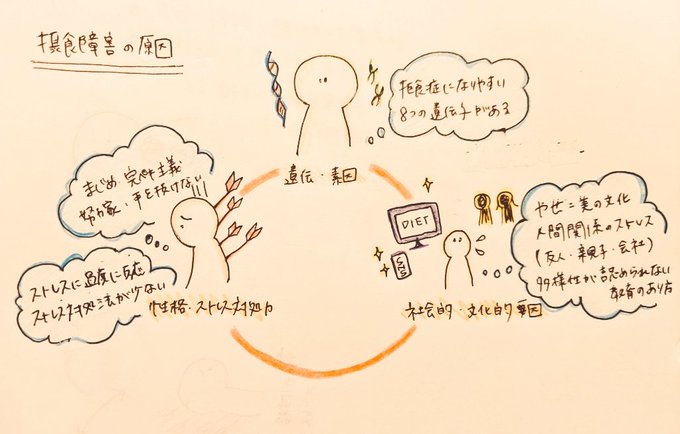 摂食障害の原因
拒食症になりやすい
8つの遺伝子がある
遺伝・素因
まじめ・完ぺき主義
努力家・手を抜けない
ストレスに過度に反応
ストレス対処法が少ない
性格・ストレス対処力
DIET
やせ=美の文化
人間関係のストレス
(友人・親子・会社)
多様性が認められない
教育のあり方
社会的・文化的要因